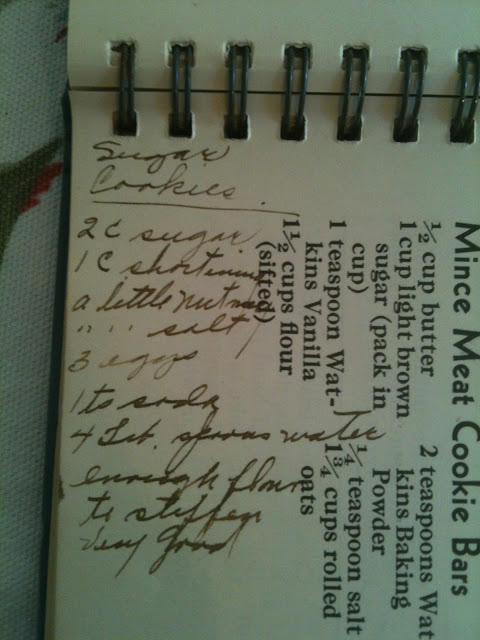 Sugar
Cookies.
2 C sugar
1 C shortening
a little nutmeg
" " " salt
3 eggs
1 ts soda
4 Tib. spoons water
enough flour
to stiffen
Very Good
Mince Meat Cookie Bars
½ cup butter
1 cup light brown
sugar (pack in
cup)
1 teaspoon Wat-
kins Vanilla
1½ cups flour
(sifted)
2 teaspoons Wat
kins Baking
Powder
¼ teaspoon salt
1¾ cups rolled
oats